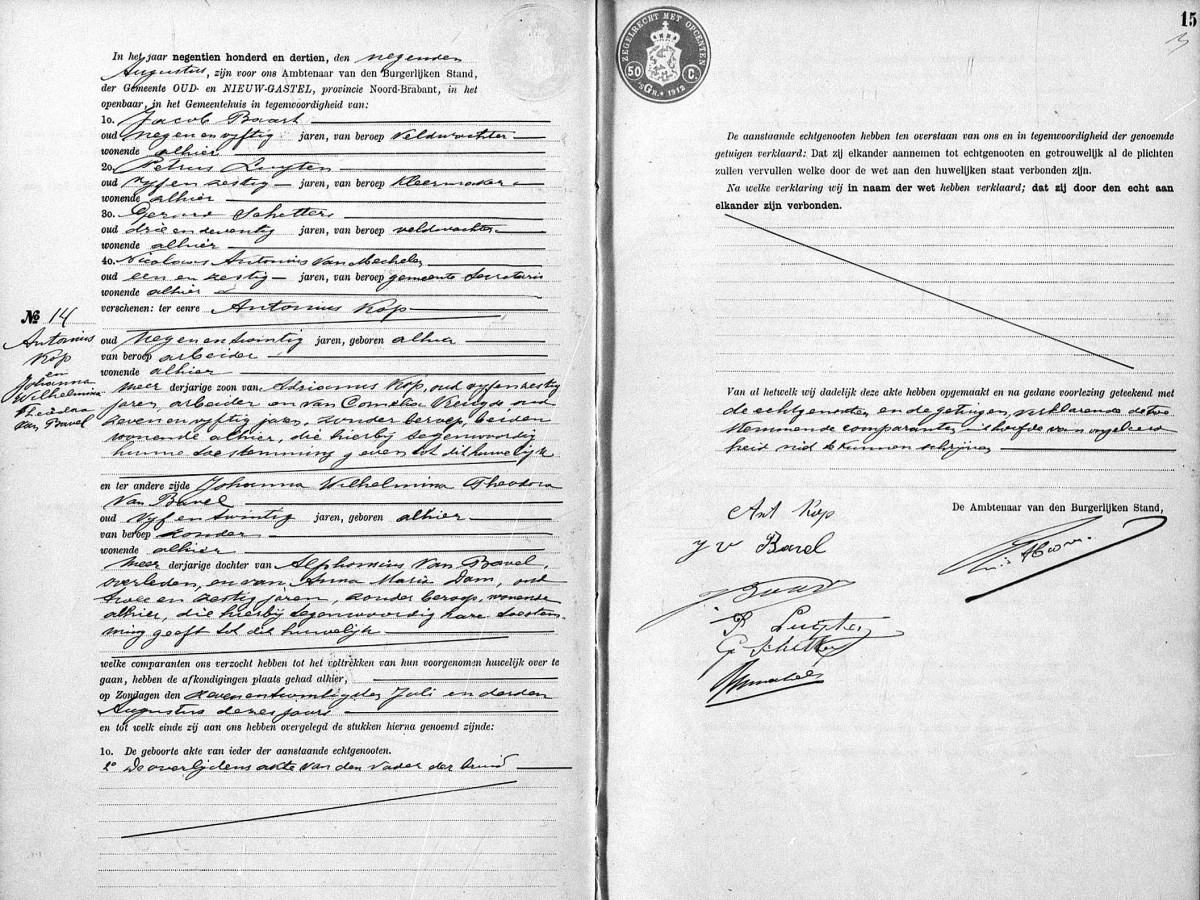 In het jaar negentien honderd en dertien, den negenden
Augustus, zijn voor ons Ambtenaar van den Burgerlijken Stand,
der Gemeente OUD- en NIEUW-GASTEL, provincie Noord-Brabant, in het
openbaar, in het Gemeentehuis in tegenwoordigheid van:
1o. Jacob Baart
oud negen en vyftig jaren, van beroep veldwachter
wonende alhier
2o. Petrus Luijten
oud vyf en zestig jaren, van beroep kleermaker
wonende alhier
3o. Gerard Schetters
oud drie en seventig jaren, van beroep veldwachter
wonende alhier
4o. Nicolaas Antonius Van Mechelen
oud een en zestig jaren, van beroep gemeente Secretaris
wonende alhier
verschenen: ter eenre Antonius Kop
№ 14
Antonius
Kop
en
Johanna
Wilhelmina
Theodora
Van Bavel
oud negen en twintig jaren, geboren alhier
van beroep arbeider
wonende alhier
meer derjarige zoon van Adrianus Kop, oud vyf en zestig
jaren, arbeider en van Cornelia oud
zeven en vyftig jaren, zonder beroep, beiden
wonende alhier, die hierby tegenwoordig
hunne toestemming geven tot dit huwelijk
en ter andere zijde Johanna Wilhelmina Theodora
Van Bavel
oud vyf en twintig jaren, geboren alhier
van beroep zonder
wonende alhier
meer derjarige dochter van Alphonsius Van Bavel,
overleden, en van Anna Maria Dam, oud
twee en zestig jaren, zonder beroep, wonende
alhier, die hierbij tegenwoordig hare toestem-
ming geeft tot dit huwelijk
welke comparanten ons verzocht hebben tot het voltrekken van hun voorgenomen huwelijk over te
gaan, hebben de afkondigingen plaats gehad alhier,
op Zondagen den zeven en twintigsten Juli en derden
Augustus dezes jaars
en tot welk einde zij aan ons hebben overgelegd de stukken hierna genoemd zijnde:
1o. De geboorte akte van ieder der aanstaande echtgenooten.
2o De overlijdens akte van den vader der bruid
ZEGELRECHT MET OPCENTEN
50 C.
'sGR. 1912
15
De aanstaande echtgenooten hebben ten overstaan van ons en in tegenwoordigheid der genoemde
getuigen verklaard: Dat zij elkander aannemen tot echtgenooten en getrouwelijk al de plichten
zullen vervullen welke door de wet aan den huwelijken staat verbonden zijn.
Na welke verklaring wij in naam der wet hebben verklaard; dat zij door den echt aan
elkander zijn verbonden.
Van al hetwelk wij dadelijk deze akte hebben opgemaakt en na gedane voorlezing geteekend met
de echtgenooten en de getuigen, verklarende de toe-
stemmende comparanten uit hoofde van ongeleerd
heid niet te kunnen schrijven
De Ambtenaar van den Burgerlijken Stand,
Ant Kop
J v Bavel
J. Baart
P. Luijten
G. Schetters